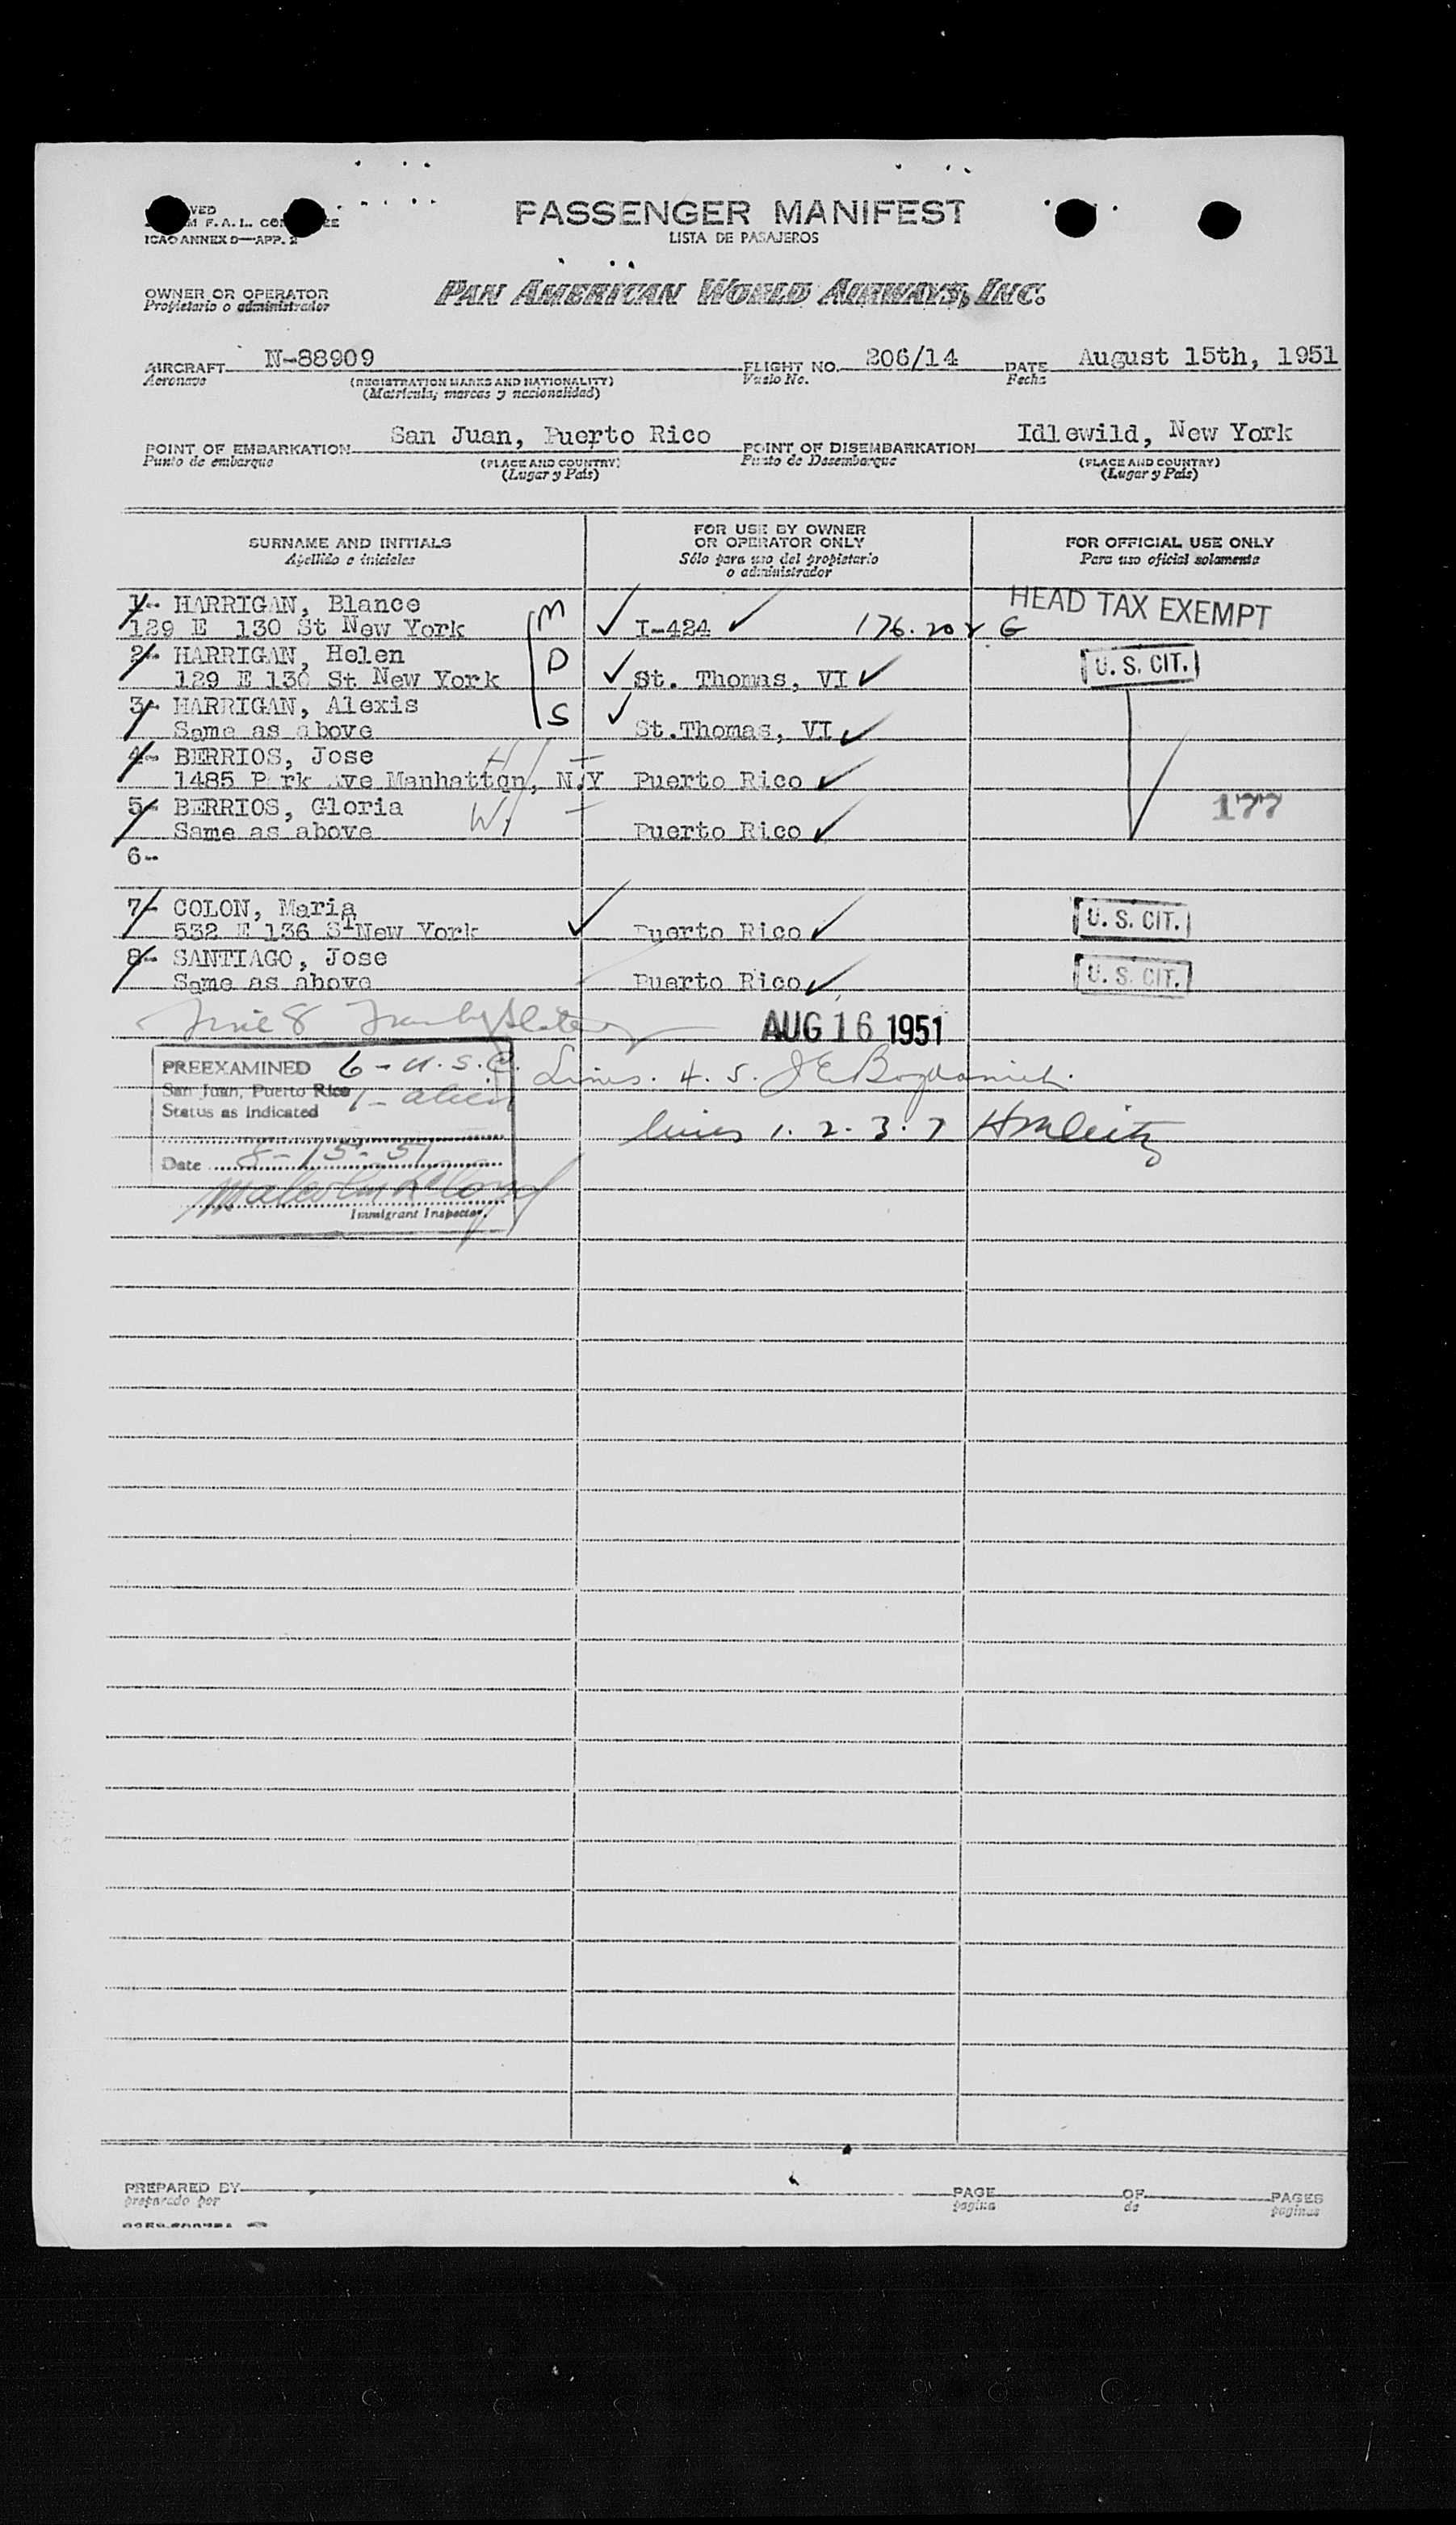 PASSENGER MANIFEST
LISTA DE PASAJEROS
F.A.L.
ICAO ANNEX 9—APP. 2
OWNER OR OPERATOR
Propietario o administrador
PAN AMERICAN WORLD AIRWAYS, INC.
AIRCRAFT N-88909 FLIGHT NO. 206/14 DATE August 15th, 1951
Aeronave (REGISTRATION MARKS AND NATIONALITY) Vuelo No. Fecha
(Matrícula, marcas y nacionalidad)
POINT OF EMBARKATION San Juan, Puerto Rico POINT OF DISEMBARKATION Idlewild, New York
Punto de embarque (PLACE AND COUNTRY) Punto de Desembarque (PLACE AND COUNTRY)
(Lugar y País) (Lugar y País)
SURNAME AND INITIALS FOR USE BY OWNER OR OPERATOR ONLY FOR OFFICIAL USE ONLY
Apellido e iniciales Sólo para uso del propietario o administrador Para uso oficial solamente
1- HARRIGAN, Blance M HEAD TAX EXEMPT
129 E 130 St New York I-424 176.20 G
2- HARRIGAN, Helen D U. S. CIT.
129 E 130 St New York St. Thomas, VI
3- HARRIGAN, Alexis S
Same as above St.Thomas, VI
4- BERRIOS, Jose H
1485 Park Ave Manhattan, N.Y Puerto Rico
5- BERRIOS, Gloria W 177
Same as above Puerto Rico
6-
7- COLON, Maria U. S. CIT.
532 E 136 St New York Puerto Rico
8- SANTIAGO, Jose U. S. CIT.
Same as above Puerto Rico
Line 8 AUG 16 1951
PREEXAMINED 6-U.S.C. Lines. 4. 5.
San Juan, Puerto Rico 1- alien
Status as indicated
lines 1. 2. 3. 7
Date 8-15-51
Immigrant Inspector.
PREPARED BY PAGE OF PAGES
preparado por pagina de paginas